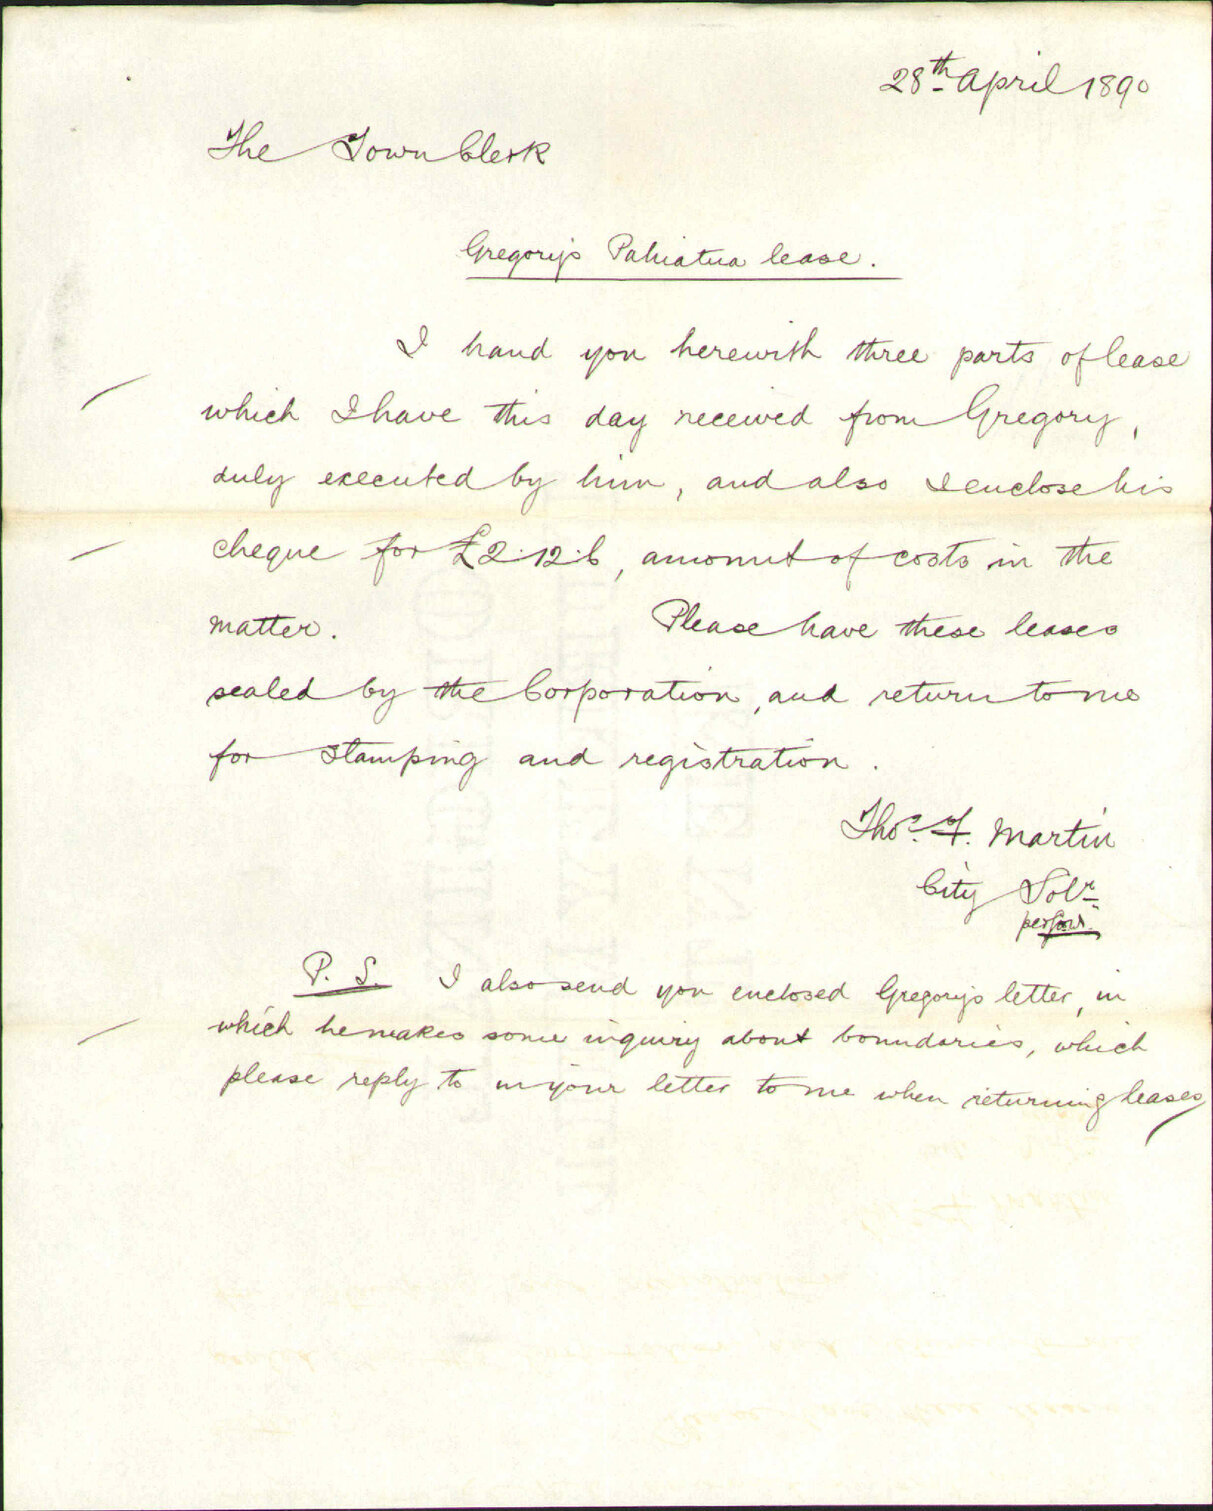 28th April 1890
The Town Clerk
Gregory's Pahiatua lease.
I hand you herewith three parts of lease
which I have this day received from Gregory,
duly executed by him, and also I enclose his
cheque for £2.12.6, amount of costs in the
matter. Please have these leases
sealed by the Corporation, and return to me
for stamping and registration.
Thos. F. Martin
City Solr
per
P. S. I also send you enclosed Gregory's letter, in
which he makes some inquiry about boundaries, which
please reply to in your letter to me when returning leases